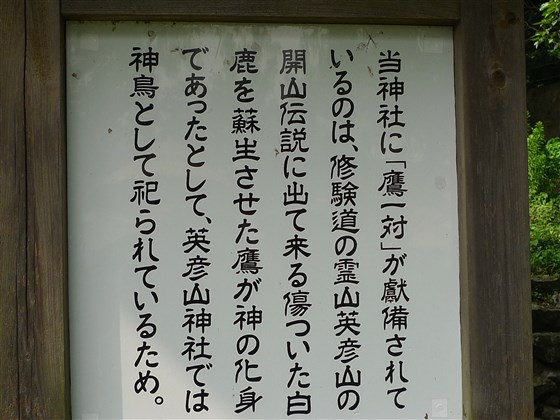 当神社に「鷹一対」が献備されて
いるのは、修験道の霊山英彦山の
開山伝説に出て来る傷ついた白
鹿を蘇生させた鷹が神の化身
であったとして、英彦山神社では
神鳥として祀られているため。